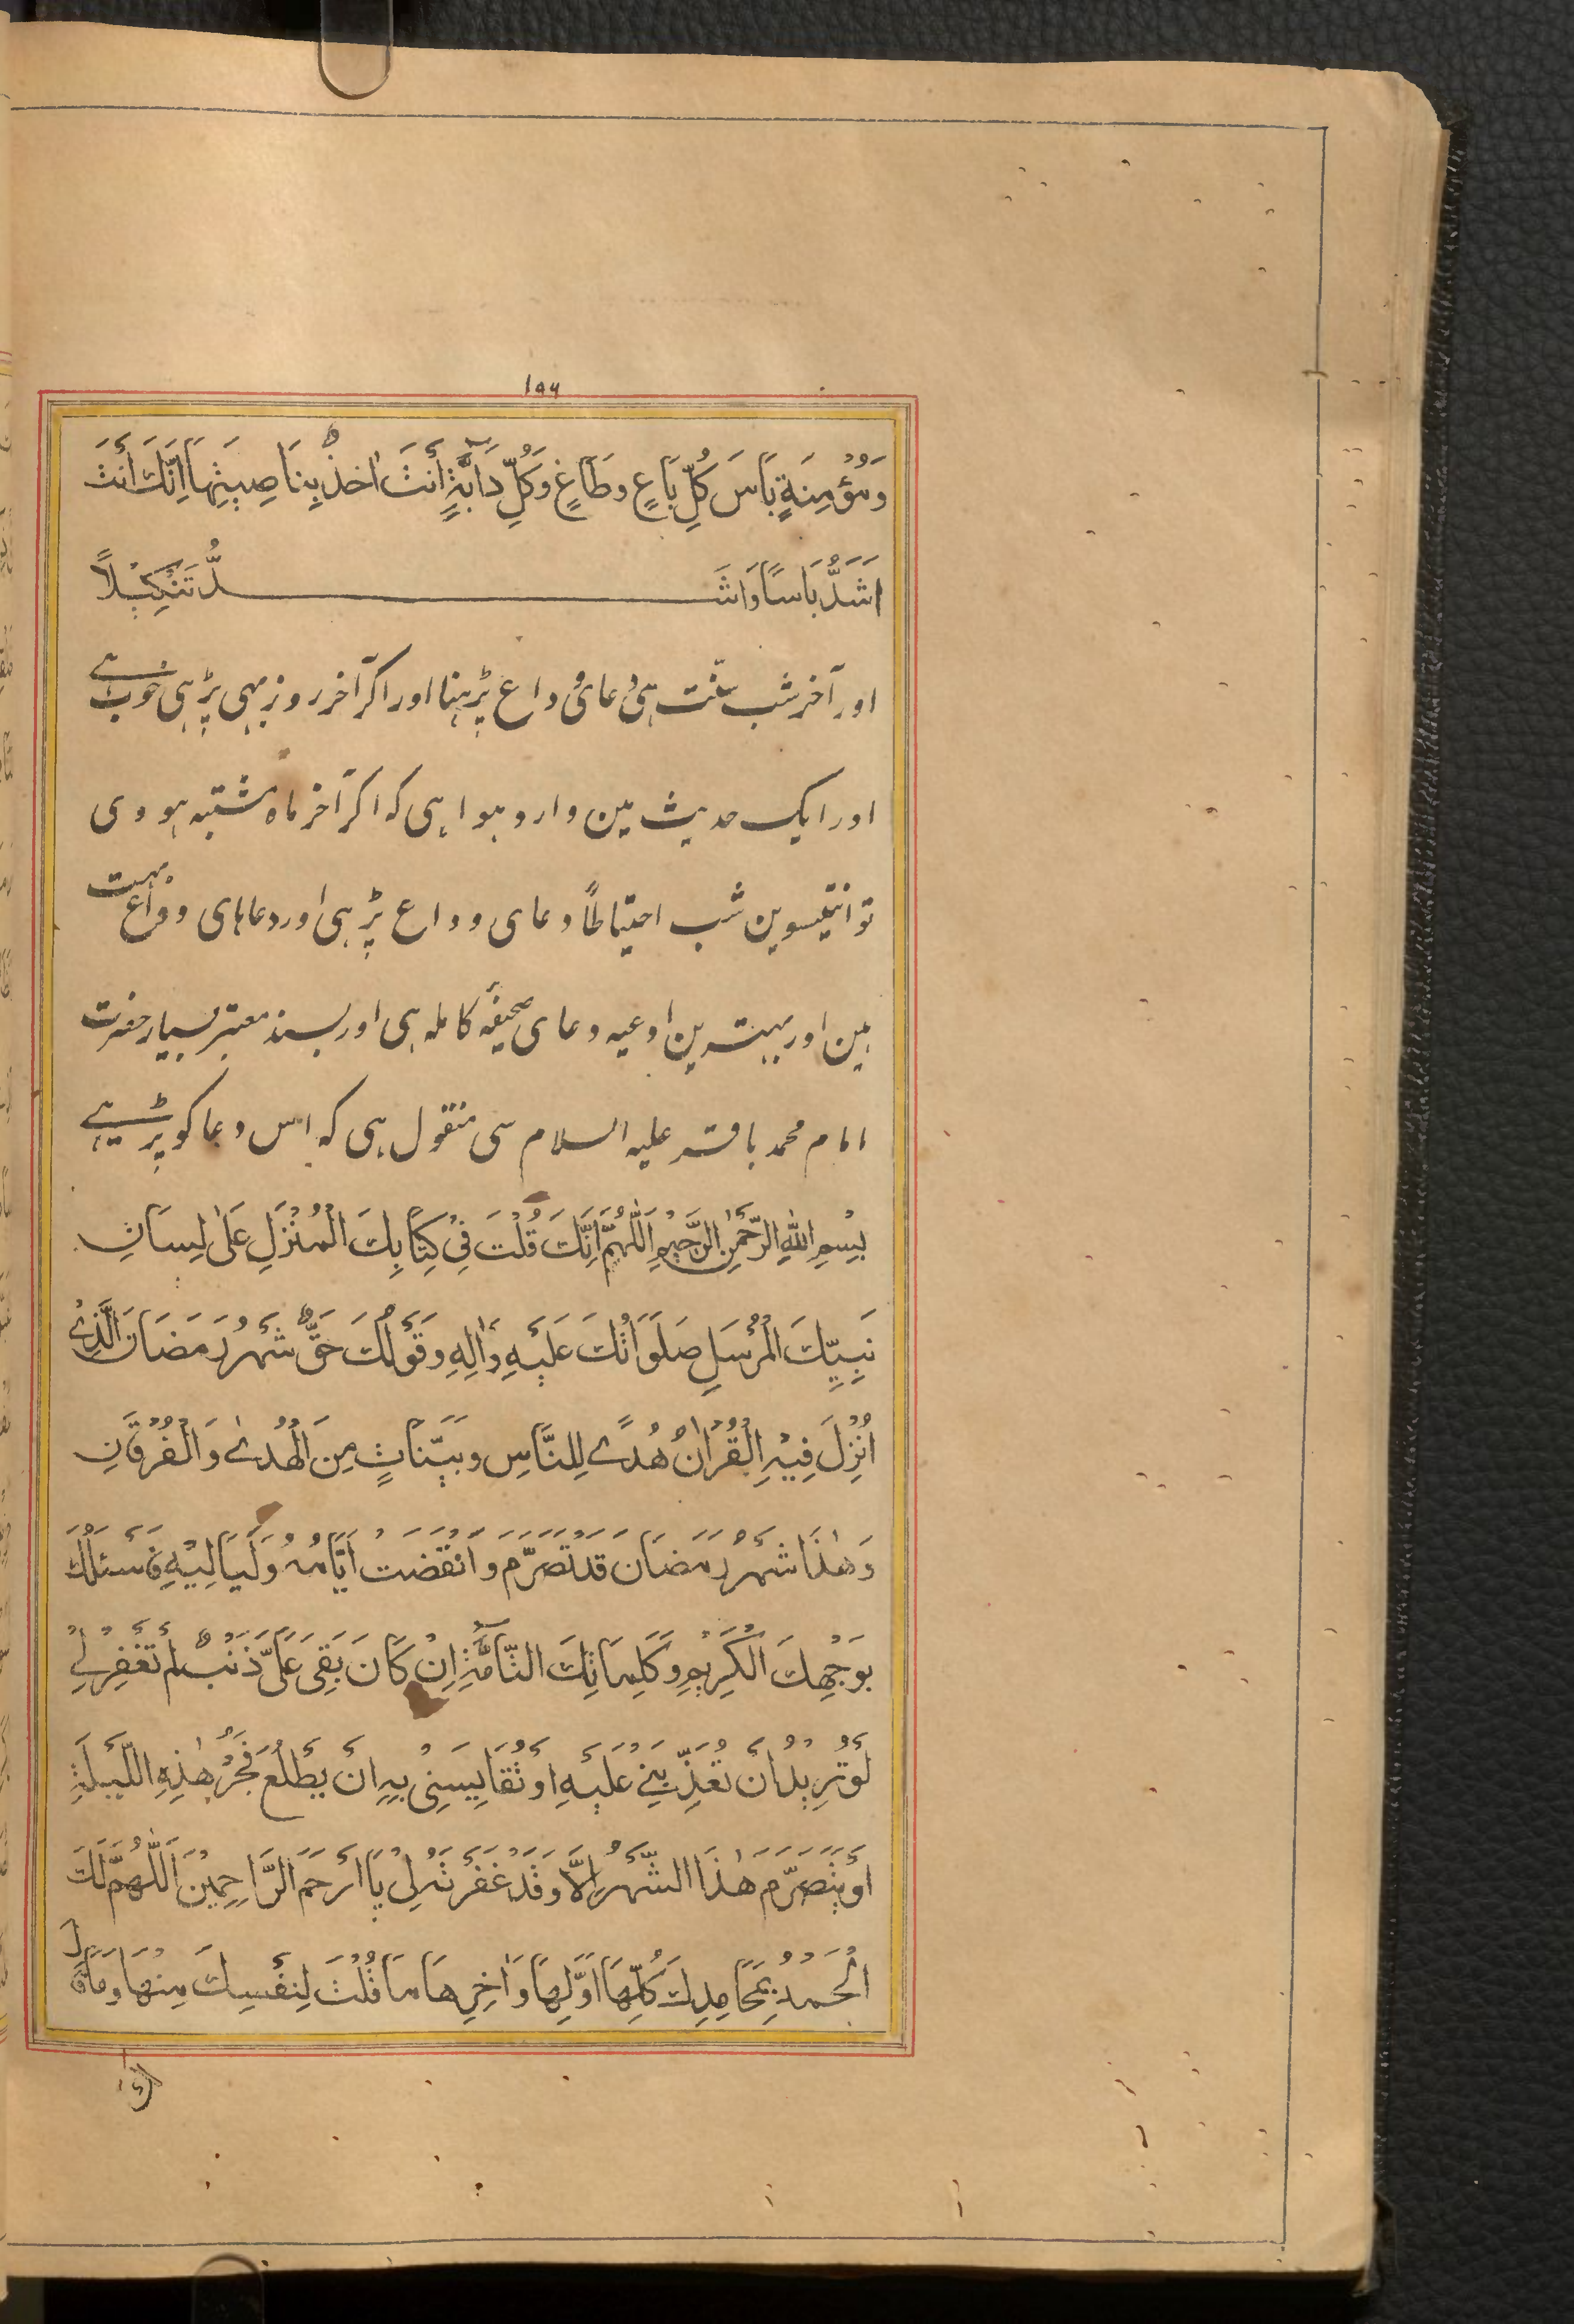 ۱۹۶
وَمُؤْمِنَةٍ بَاْسَ كُلِّ بَاغٍ وطَاغٍ وَكُلِّ دَآبَّةٍ أَنْتَ اٰخِذٌ بِنَاصِيَتِهَا اِنَّكَ أَنْتَ
اَشَدُّ بَاسًا وَاَشَدُّ تَنْكِيْلًا
اور آخر شب سنّت ہی دعای وداع پڑہنا اور اکر آخر روز بہی پڑہی خوب ہے
اور ایک حدیث مین وارد ہوا ہی کہ اکر آخر ماہ مشتبہ ہووی
تو انتیسوین شب احتیاطاً دعای وداع پڑہی اور دعاہای وداع بہت
ہین اور بہترین ادعیہ دعای صحیفۂ کاملہ ہی اور بسند معتبر بسیار حضرت
امام محمد باقر علیہ السلام سی منقول ہی کہ اس دعا کو پڑہے
بِسْمِ اللّٰهِ الرَّحْمٰنِ الرَّحِيْمِ اَللّٰهُمَّ اِنَّكَ قُلْتَ فِيْ كِتَابِكَ الْمُنْزَلِ عَلٰى لِسَانِ
نَبِيِّكَ الْمُرْسَلِ صَلَوَاتُكَ عَلَيْهِ وَاٰلِهِ وَقَوْلُكَ حَقٌّ شَهْرُ رَمَضَانَ الَّذِيْ
اُنْزِلَ فِيْهِ الْقُرْاٰنُ هُدًى لِلنَّاسِ وبَيِّنَاتٍ مِنَ الْهُدٰى وَالْفُرْقَانِ
وَهٰذَا شَهْرُ رَمَضَانَ قَدْ تَصَرَّمَ وَانْقَضَتْ اَيَّامُهُ وَلَيَالِيْهِ فَاَسْئَلُكَ
بِوَجْهِكَ الْكَرِيْمِ وَكَلِمَاتِكَ التَّآمَّةِ اِنْ كَانَ بَقِيَ عَلَيَّ ذَنْبٌ لَمْ تَغْفِرْ لِيْ
لَوْ تُرِيْدُ اَنْ تُعَذِّبَنِيْ عَلَيْهِ اَوْ تُقَايِسَنِيْ بِهِ اَنْ يَطْلُعَ فَجْرُ هٰذِهِ اللَّيْلَةِ
اَوْ يَتَصَرَّمَ هٰذَا الشَّهْرُ اِلَّا وَقَدْ غَفَرْتَهُ لِيْ يَا اَرْحَمَ الرَّاحِمِيْنَ اَللّٰهُمَّ لَكَ
الْحَمْدُ بِمَحَامِدِكَ كُلِّهَا اَوَّلِهَا وَاٰخِرِهَا مَا قُلْتَ لِنَفْسِكَ مِنْهَا وَمَا قَالَ